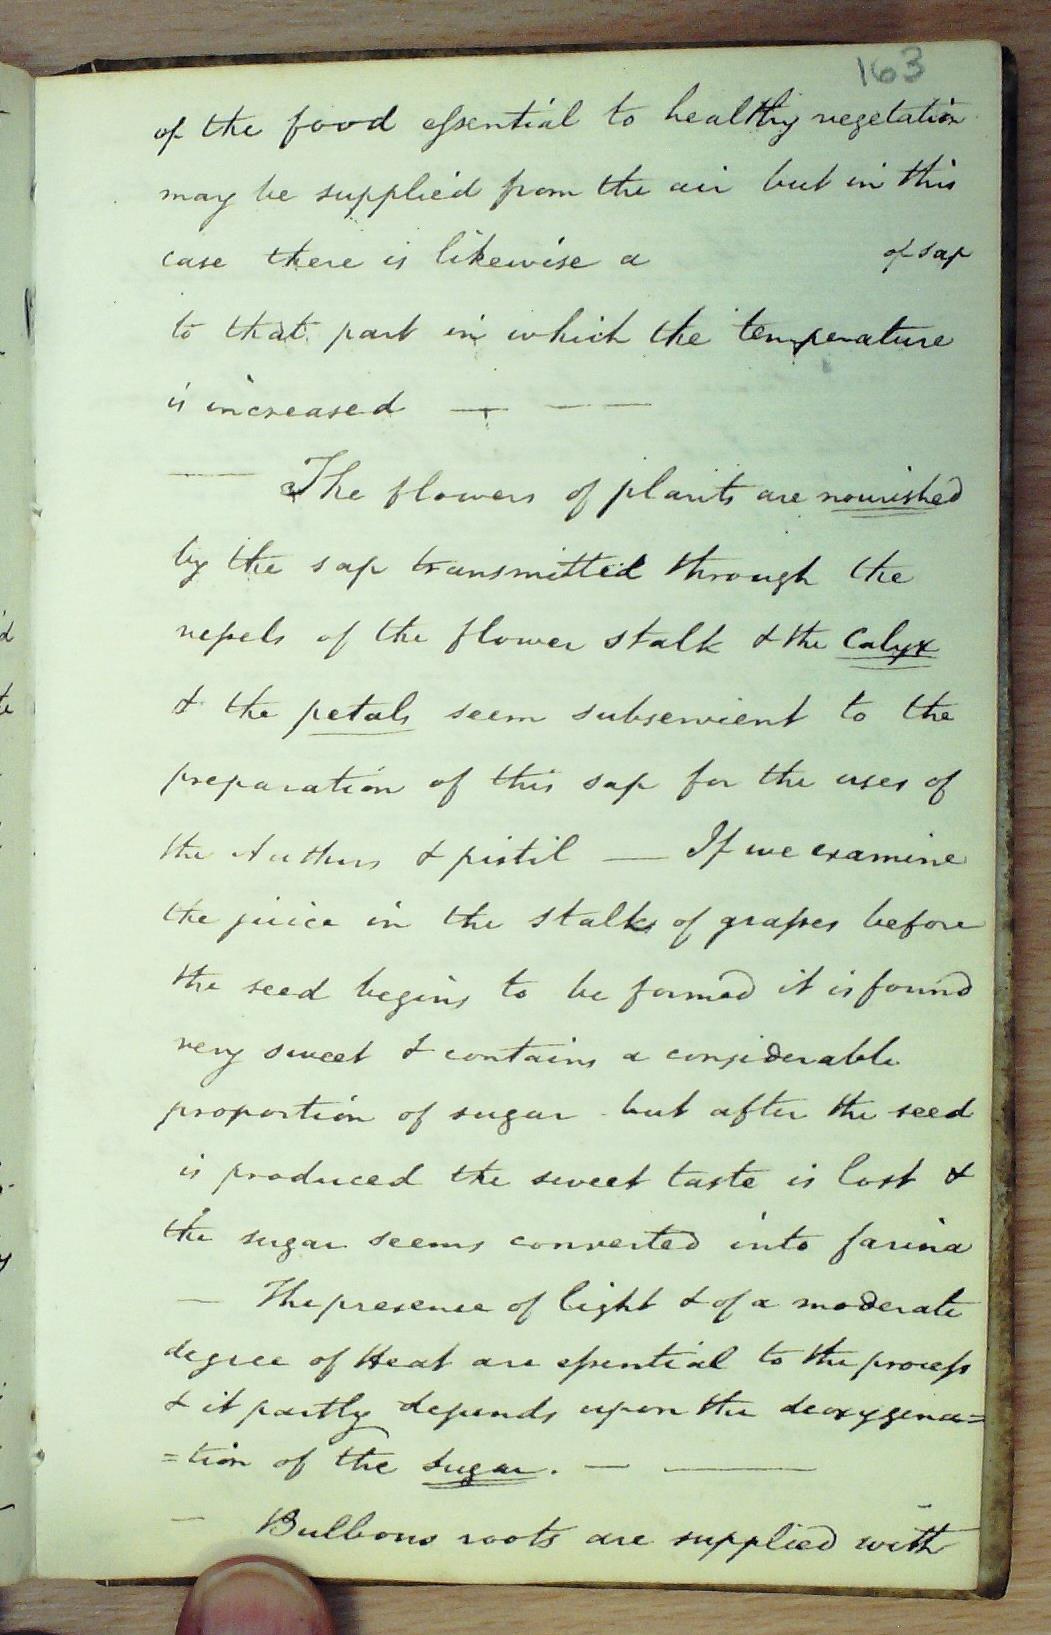 163
of the food essential to healthy vegetation
may be supplied from the air but in this
case there is likewise a of sap
to that part in which the temperature
is increased — — —
— The flowers of plants are nourished
by the sap transmitted through the
vessels of the flower stalk & the Calyx
& the petals seem subservient to the
preparation of this sap for the uses of
the Anthers & pistil — If we examine
the juice in the stalks of grasses before
the seed begins to be formed it is found
very sweet & contains a considerable
proportion of sugar but after the seed
is produced the sweet taste is lost &
the sugar seems converted into farina
— The presence of light & of a moderate
degree of Heat are essential to the process
& it partly depends upon the deoxygena=
=tion of the sugar. — —
— Bulbous roots are supplied with